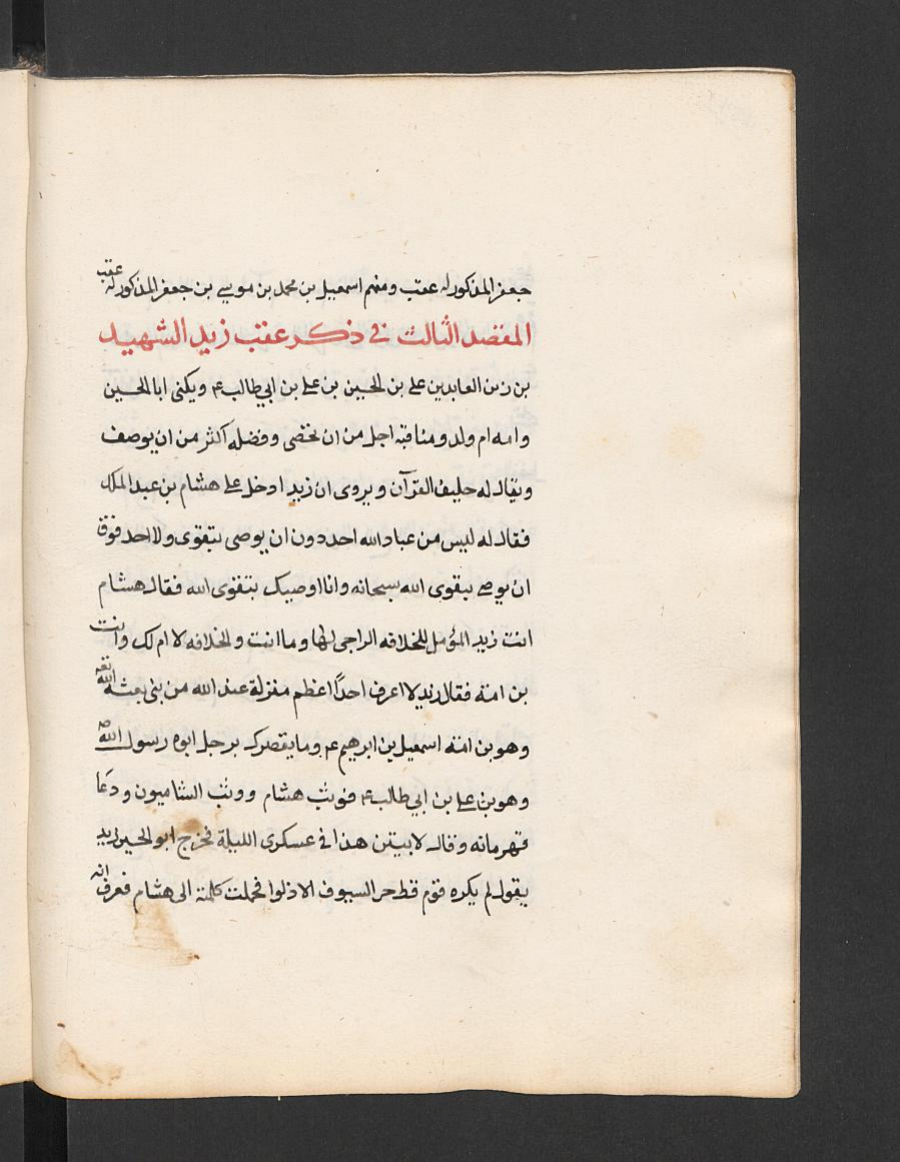 جعفر المذكور له عقب ومنهم اسمعيل بن محمد بن موسى بن جعفر المذكور له عقب
المقصد الثالث في ذكر عقب زيد الشهيد
بن زين العابدين على بن الحسين بن على بن ابي طالب ع ويكنى ابا الحسين
وامه ام ولد ومناقبه اجل من ان تحصى وفضله اكثر من ان يوصف
ويقال له حليف القرآن ويروى ان زيدا دخل على هشام بن عبد الملك
فقال له ليس من عباد الله احد دون ان يوصى بتقوى ولا احد فوق
ان يوصى بتقوى الله سبحانه وانا اوصيك بتقوى الله فقال هشام
انت زيد المؤمل للخلافه الراجى لها وما انت والخلافه لا ام لك وانت
بن امة فقال زيد لا اعرف احدًا اعظم منزلة عند الله من نبى بعثه الله تعه
وهو بن امة اسمعيل بن ابرهيم ع وما يقصرك برجل ابوه رسول الله ص
وهو بن على بن ابي طالب ع فوثب هشام ووثب الشاميون ودعا
قهرمانه وقال لا يبيتن هذا في عسكرى الليلة فخرج ابو الحسين زيد
يقول لم يكره قوم قط حر السيوف الا ذلوا فحملت كلمته الى هشام فعرف انه